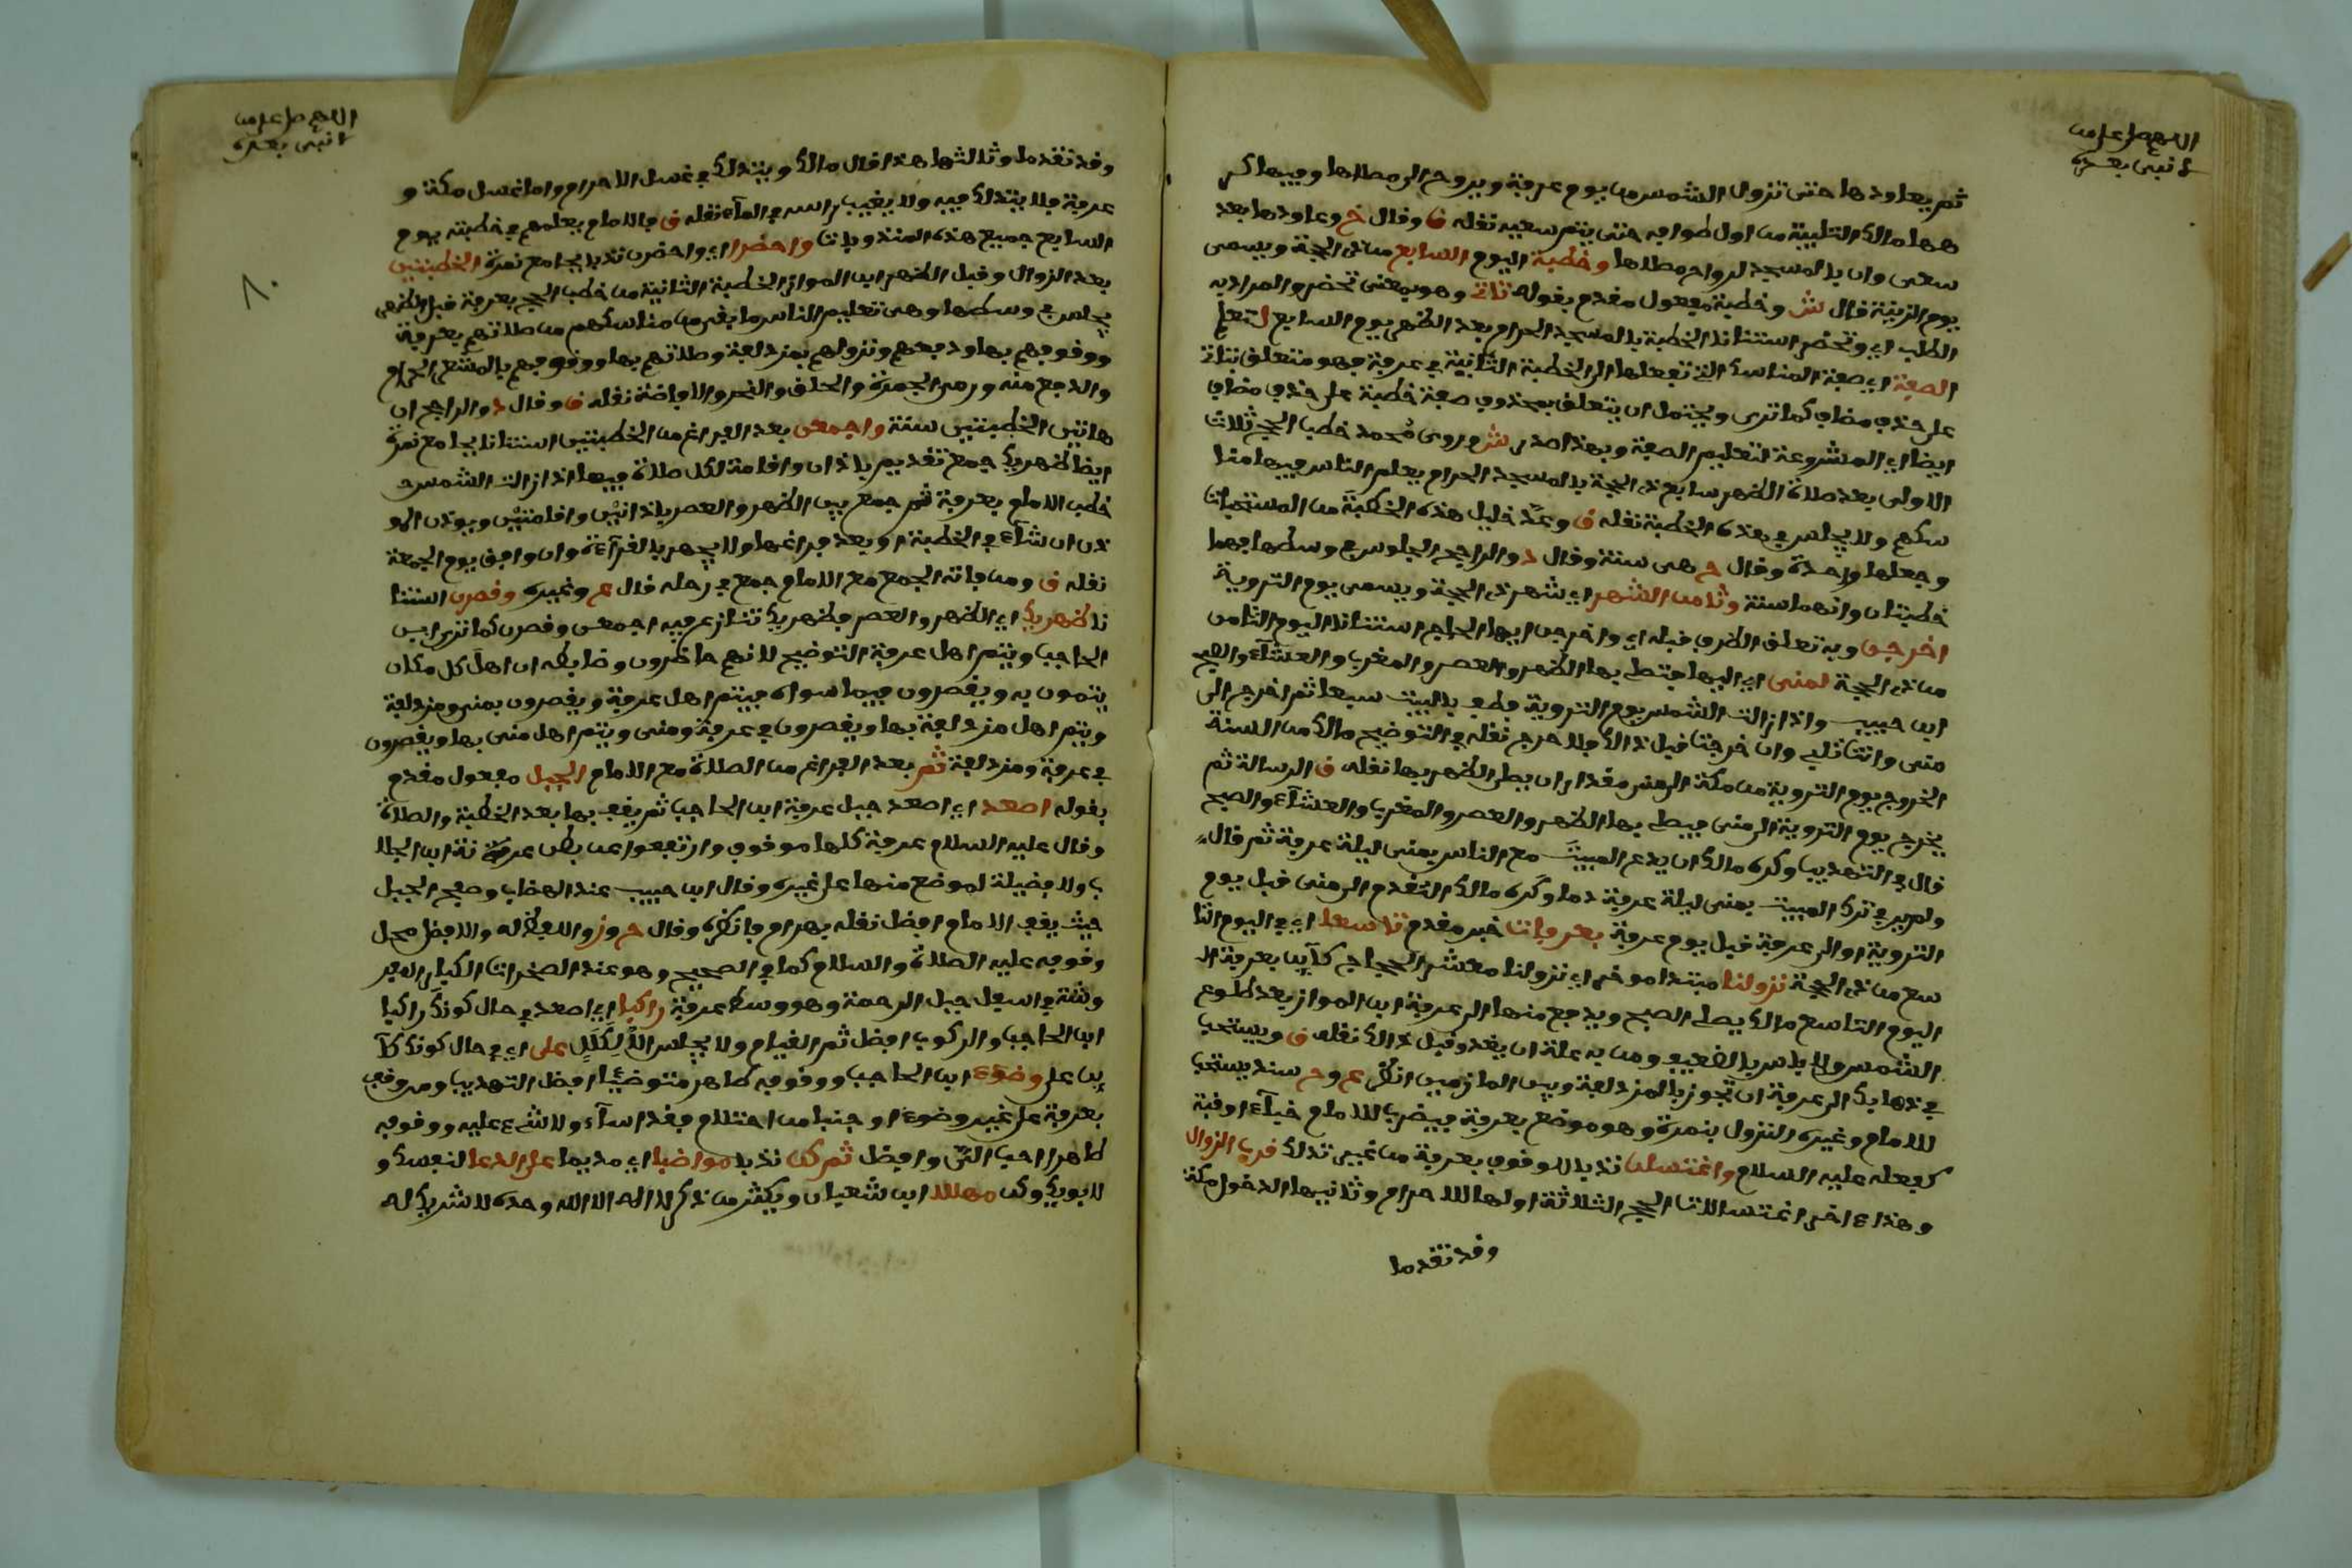 اللهم صل على من
لا نبي بعده
ثم يعاودها حتى تزول الشمس من يوم عرفة ويروح إلى مصلاها وفيها كر
هها مالك التلبية من أول طوافه حتى يتم سعيه نقله ق وقال خ وعاودها بعد
سعى وان بالمسجد لرواح مصلاها وخطبة اليوم السابع من ذي الحجة ويسمى
يوم الزينة قال ش وخطبة مفعول مقدم بقوله تات وهو بمعنى تحضر والمراد به
الطلب اي وتحضر استنانا الخطبة بالمسجد الحرام بعد الظهر يوم السابع لتعلم
الصفة اي صفة المناسك التي تفعلها الى الخطبة الثانية في عرفة فهو متعلق بتات
على حذف مضاف كما ترى ويحتمل ان يتعلق بمحذوف صفة خطبة على حذف مضاف
ايضا اي المشروعة لتعليم الصفة وبهذا صدر ش وروى محمد خطب الحج ثلاث
الاولى بعد صلاة الظهر سابع ذي الحجة بالمسجد الحرام يعلم الناس فيها منا
سكهم ولا يجلس في هذه الخطبة نقله ق وعد خليل هذه الخطبة من المستحبات
وجعلها واحدة وقال ح هي سنة وقال د والراجح الجلوس في وسطها فهما
خطبتان وانهما سنة وثامن الشهر اي شهر ذي الحجة ويسمى يوم التروية
اخرجن وبه تعلق الظرف قبله اي واخرجن ايها الحاج استنانا اليوم الثامن
من ذي الحجة لمنى اي اليها فتصلي بها الظهر والعصر والمغرب والعشاء والصبح
ابن حبيب واذا زالت الشمس يوم التروية فطف بالبيت سبعا ثم اخرج الى
منى وانت تلبي وان خرجت قبل ذلك فلا حرج نقله في التوضيح مالك من السنة
الخروج يوم التروية من مكة الى منى مقدار ان يصلي الظهر بها نقله ق الرسالة ثم
يخرج يوم التروية الى منى فيصلي بها الظهر والعصر والمغرب والعشاء والصبح
قال في التهذيب وكره مالك ان يدع المبيت مع الناس بمنى ليلة عرفة ثم قال
ولم ير في ترك المبيت بمنى ليلة عرفة دما وكره مالك التقدم الى منى قبل يوم
التروية او الى عرفة قبل يوم عرفة بعرفات خبر مقدم تاسعا اي في اليوم التا
سع من ذي الحجة نزولنا مبتدا موخر اي نزولنا معشر الحجاج كائن بعرفة ال
اليوم التاسع مالك يصلي الصبح ويدفع منها الى عرفة ابن المواز بعد طلوع
الشمس ولا باس بالضعيف ومن به علة ان يغدو قبل ذلك نقله ق ويستحب
في ذهابك الى عرفة ان تجوز بالمزدلفة وبين المازمين انظر عم و ح سند يستحب
للامام وغيره النزول بنمرة وهو موضع بعرفة فيضرب للامام خباء او قبة
كفعله عليه السلام واغتسلن ندبا للوقوف بعرفة من غير تدلك قرب الزوال
وهذا ءاخر اغتسالات الحج الثلاثة اولها للاحرام وثانيها الدخول مكة
وقد تقدما
اللهم صل على من
لا نبي بعده
٨٠
وقد تقدما وثالثها هذا قال مالك ويتدلك في غسل الاحرام واما غسل مكة و
عرفة فلا يتدلك فيه ولا يغيب راسه في الماء نقله ق فالامام يعلمهم في خطبته يوم
السابع جميع هذه المندوبات واحضرا اي واحضرن ندبا بجامع نمرة الخطبتين
بعد الزوال وقبل الظهر ابن المواز الخطبة الثانية من خطب الحج بعرفة قبل الظهر
يجلس في وسطها وهي تعليم الناس ما بقي من مناسكهم من صلاتهم بعرفة
ووقوفهم بها ودفعهم ونزولهم بمزدلفة وصلاتهم بها ووقوفهم بالمشعر الحرام
والدفع منه ورمي الجمرة والحلق والنحر والافاضة نقله ق وقال د والراجح ان
هاتين الخطبتين سنة واجمعن بعد الفراغ من الخطبتين استنانا بجامع نمرة
ايضا ظهريك جمع تقديم باذان واقامة لكل صلاة فيها اذا زالت الشمس
خطب الامام بعرفة ثم جمع بين الظهر والعصر باذانين واقامتين ويوذن المو
ذن ان شاء في الخطبة او بعد فراغها ولا يجهر بالقرآءة وان وافق يوم الجمعة
نقله ق ومن فاته الجمع مع الامام جمع في رحله قال عم وغيره وقصرن استنا
نا ظهريك اي الظهر والعصر فظهريك تنازع فيه اجمعن وقصرن كما ترى ابن
الحاجب ويتم اهل عرفة التوضيح لانهم حاضرون وضابطه ان اهل كل مكان
يتمون به ويقصرون فيما سواه فيتم اهل عرفة ويقصرون بمنى ومزدلفة
ويتم اهل مزدلفة بها ويقصرون في عرفة ومنى ويتم اهل منى بها ويقصرون
في عرفة ومزدلفة ثم بعد الفراغ من الصلاة مع الامام الجبل مفعول مقدم
بقوله اصعد اي اصعد جبل عرفة ابن الحاجب ثم يقف بها بعد الخطبة والصلاة
وقال عليه السلام عرفة كلها موقف وارتفعوا عن بطن عرنة ابن الجلا
ب ولا فضيلة لموضع منها على غيره وقال ابن حبيب عند الهضاب وسفح الجبل
حيث يقف الامام افضل نقله بهرام فانظره وقال ح و ز واللفظ له والافضل محل
وقوفه عليه الصلاة والسلام كما في الصحيح وهو عند الصخرات الكبار المفر
وشة في اسفل جبل الرحمة وهو وسط عرفة راكبا اي اصعد في حال كونك راكبا
ابن الحاجب والركوب افضل ثم القيام ولا يجلس الا لكلل على اي في حال كونك كآ
ين على وضوء ابن الحاجب ووقوفه طاهرا متوضئا افضل التهذيب ومن وقف
بعرفة على غير وضوء او جنبا من احتلام فقد اسآء ولا شيء عليه ووقوفه
طاهرا احب الي وافضل ثم كن ندبا مواضبا اي مديما على الدعا لنفسك و
لابويك وكن مهللا ابن شعبان ويكثر من ذكر لا اله الا الله وحده لا شريك له